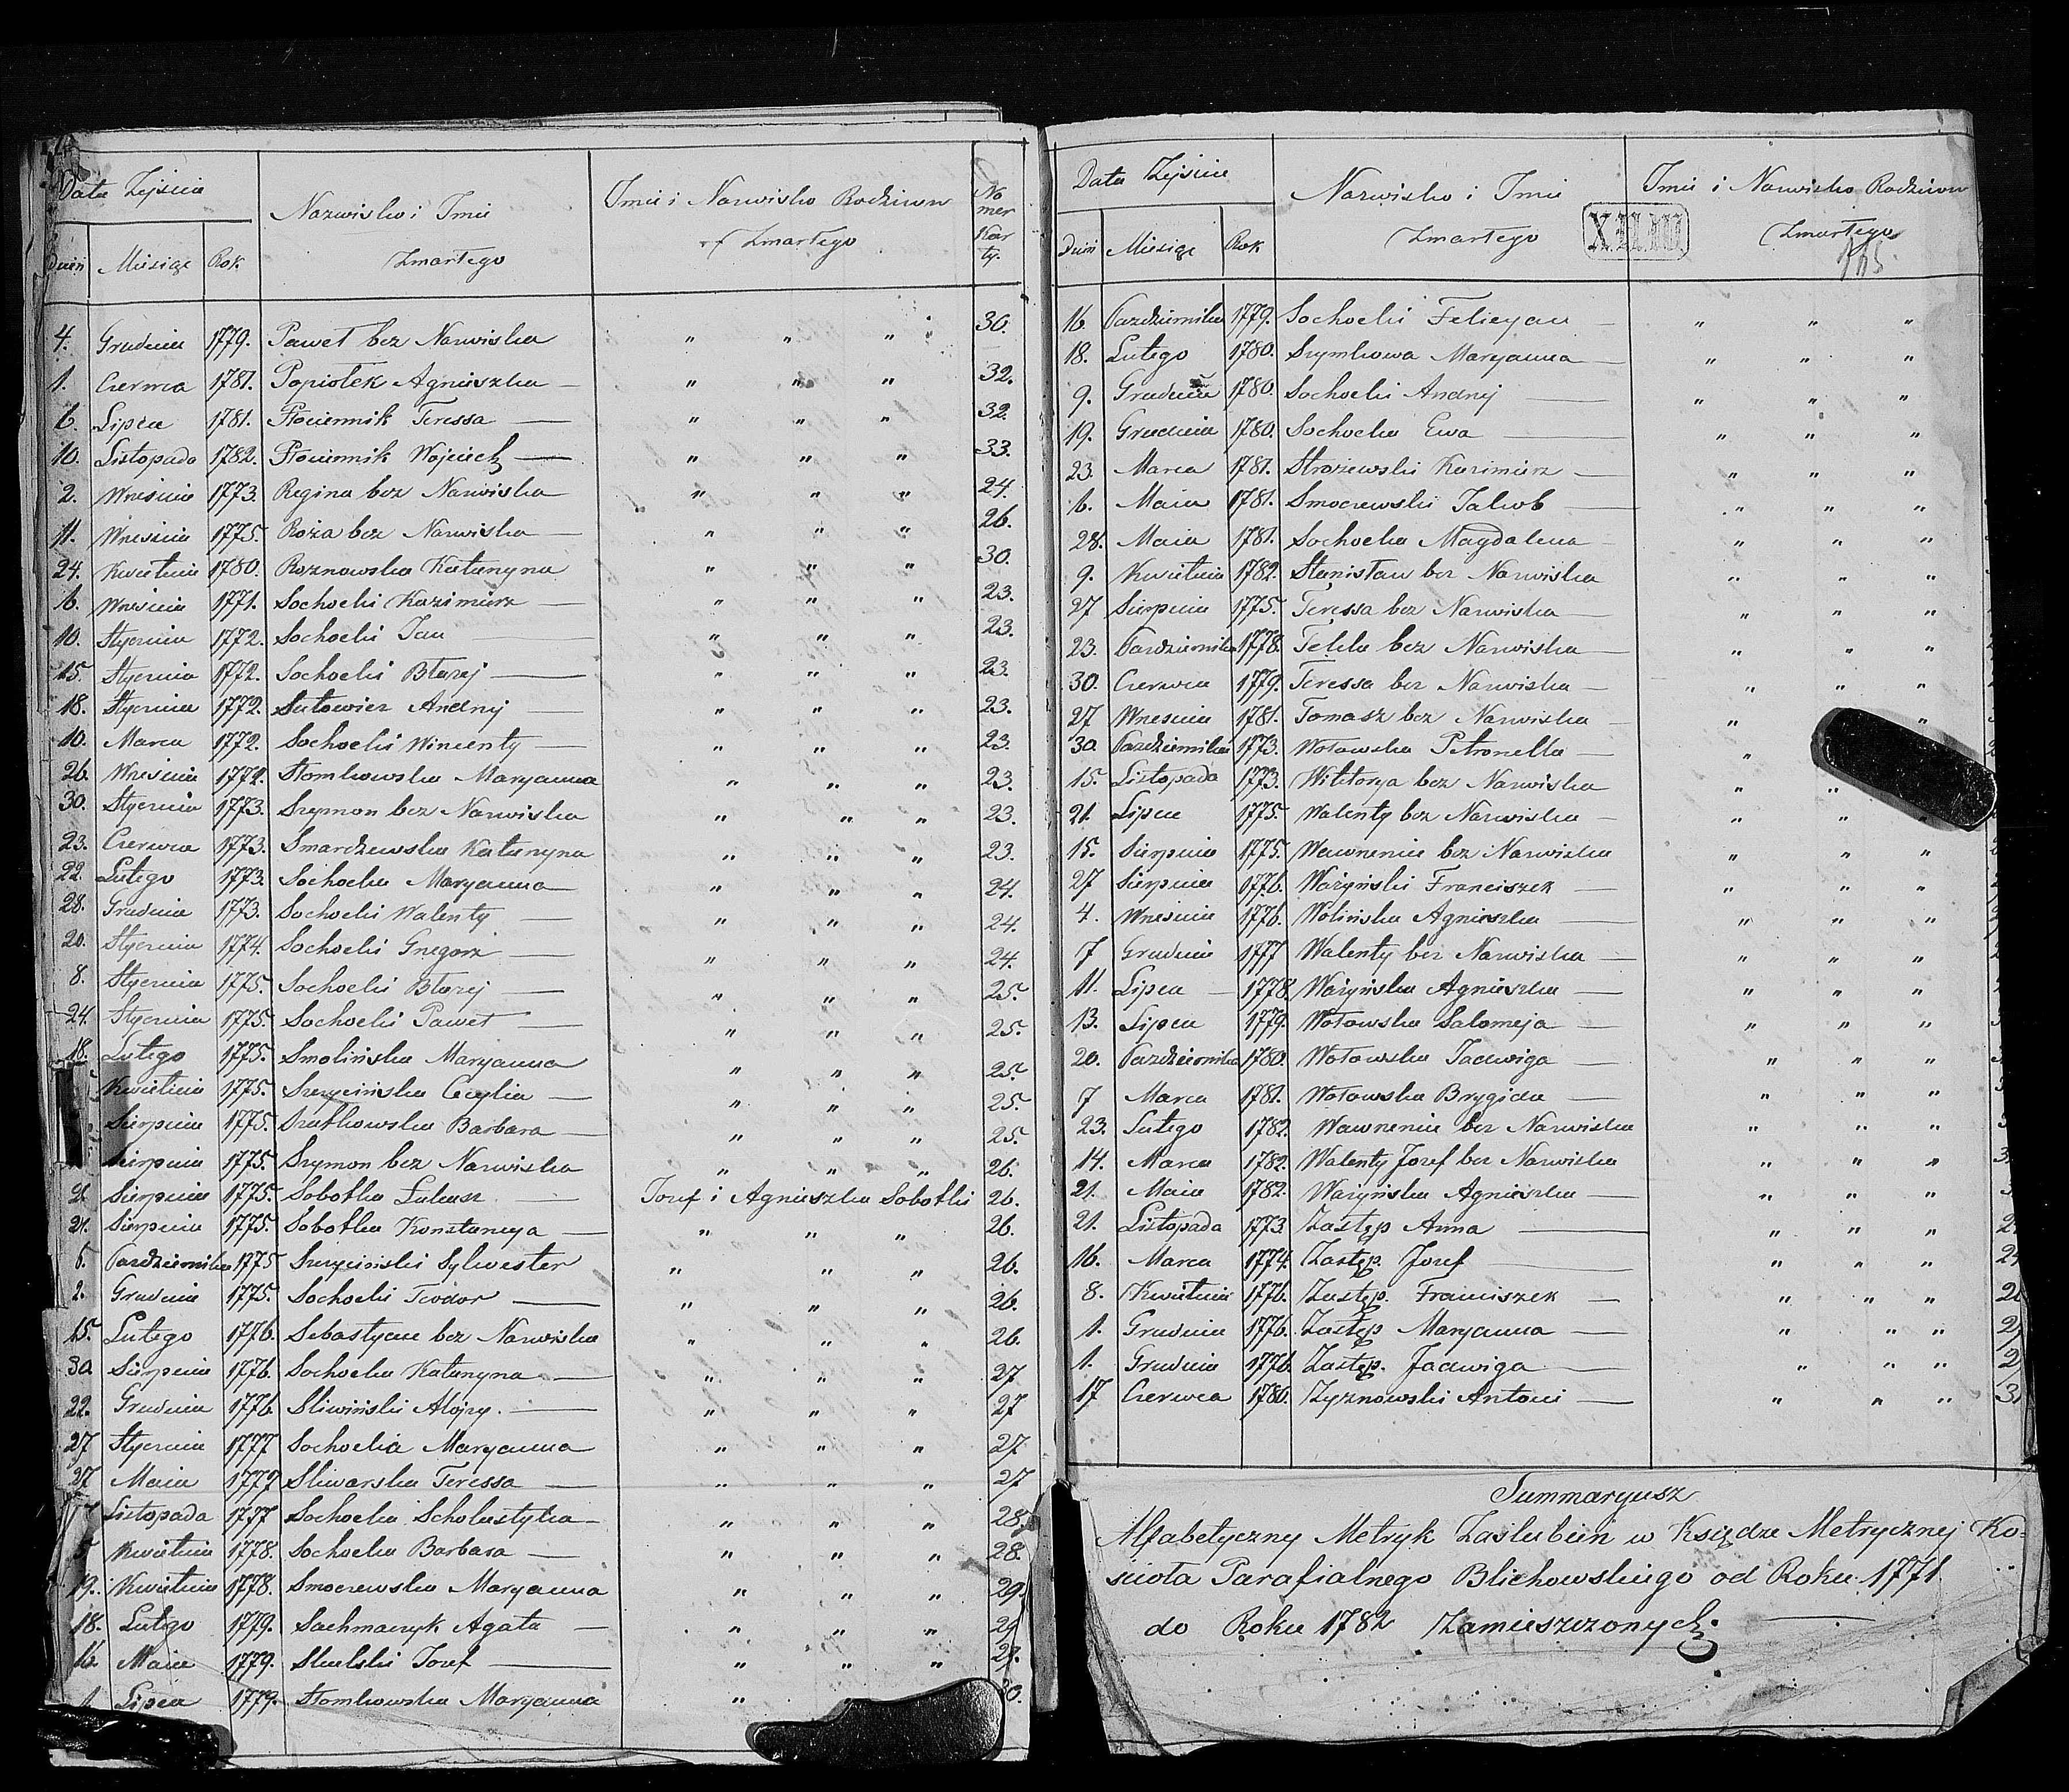 Data Zejścia
Nazwisko i Imie
Zmartego
Imie i Nazwisko Rodziców
Zmartego
No
mer
Kar
ty.
Dzień Miesiąc Rok
4. Grudnia 1779. Paweł bez Nazwiska " " " 30.
1. Czerwca 1781. Popiołek Agnieszka — " " " 32.
6. Lipca 1781. Płóciennik Teressa — " " " 32.
10. Listopada 1782. Płóciennik Wojciech — " " " 33.
2. Wrześnie 1773. Regina bez Nazwiska " " " 24.
11. Wrześnie 1775. Roża bez Nazwiska — " " " 26.
24. Kwietnia 1780. Roznowska Katarzyna " " " 30.
6. Wrześnie 1771. Sochocki Kazimierz — " " " 23.
10. Stycznia 1772. Sochocki Jan — " " " 23.
15. Stycznia 1772. Sochocki Błażej — " " " 23.
18. Stycznia 1772. Andrzej — " " " 23.
10. Marca 1772. Sochocki Wincenty — " " " 23.
26. Wrześnie 1772. Słomkowska Maryanna " " " 23.
30. Stycznia 1773. Szymon bez Nazwiska " " " 23.
23. Czerwca 1773. Smardzewska Katarzyna " " " 23.
22. Lutego 1773. Sochocka Maryanna — " " " 24.
28. Grudnia 1773. Sochocki Walenty — " " " 24.
20. Stycznia 1774. Sochocki Grzegorz — " " " 24.
8. Stycznia 1775. Sochocki Błażej — " " " 25.
24. Stycznia 1775. Sochocki Paweł — " " " 25.
18. Lutego 1775. Smolińska Maryanna " " " 25.
Kwietnia 1775. Szczycińska Cecylia — " " " 25.
Sierpnia 1775. Szatkowska Barbara — " " " 25.
Sierpnia 1775. Szymon bez Nazwiska " " " 26.
21. Sierpnia 1775. Sobotka Łukasz Jozef i Agnieszka Sobotki 26.
21. Sierpnia 1775. Sobotka Konstancya — " " " 26.
5. Pazdziernika 1775 Szczyciński Sylwester " " " 26.
2. Grudnia 1775. Sochocki Teodor — " " " 26.
15. Lutego 1776. Sebastyan bez Nazwiska " " " 26.
30. Sierpnia 1776. Sochocka Katarzyna — " " " 27
22. Grudnia 1776 Sliwiński Alojzy. — " " " 27
27 Stycznia 1777 Sochocka Maryanna " " " 27
27 Maia 1777 Sliwarska Teressa — " " " 27
Listopada 1777 Sochocka Scholastyka — " " " 28.
5 Kwietnia 1778. Sochocka Barbara — " " " 28.
19. Kwietnia 1778. Smoczewska Maryanna " " " 29.
18. Lutego 1779. Sachmaczyk Agata — " " " 29
16 Maia 1779. Skulski Jozef — " " " 29.
1 Lipca 1779. Słomkowska Maryanna "
Data Zejścia
Nazwisko i Imie
Zmartego
XIII
Imie i Nazwisko Rodziców
Zmartego
Dzień Miesiąc Rok
16. Pazdziernika 1779. Sochocki Felicyan — " " "
18. Lutego 1780. Szymkowa Maryanna — " " "
9. Grudnia 1780. Sochocki Andrzej — " " "
19. Grudnia 1780. Sochocka Ewa — " " "
23. Marca 1781. Strożewski Kazimierz — " " "
6. Maia 1781. Smoczewski Jakob — " " "
28. Maia 1781. Sochocka Magdalena — " " "
9. Kwietnia 1782. Stanisław bez Nazwiska " " "
27 Sierpnia 1775. Teressa bez Nazwiska — " " "
23. Pazdziernika 1778. Tekla bez Nazwiska — " " "
30. Czerwca 1779. Teressa bez Nazwiska — " " "
27 Wrześnie 1781. Tomasz bez Nazwiska — " "
30. Pazdziernika 1773. Wołowska Petronella — "
15. Listopada 1773. Wiktorya bez Nazwiska " "
21. Lipca 1775. Walenty bez Nazwiska — " " "
15. Sierpnia 1775. Wawrzeniec bez Nazwiska " " "
27 Sierpnia 1776. Ważyński Franciszek — " " "
4. Wrześnie 1776. Wolińska Agnieszka — " " "
7 Grudnia 1777 Walenty bez Nazwiska — " " "
11. Lipca — 1778. Ważyńska Agnieszka — " " "
13. Lipca 1779. Wołowska Salomeja — " " "
20. Pazdziernika 1780. Wołowska Jadwiga — " " "
7 Marca 1781. Wołowska Brygida — " " "
23. Lutego 1782. Wawrzeniec bez Nazwiska " " "
14. Marca 1782. Walenty Jozef bez Nazwiska " " "
21. Maia 1782. Ważyńska Agnieszka — " " "
21. Listopada 1773. Zastęp Anna — " " "
16. Marca 1774. Zastęp. Jozef — " " "
8. Kwietnia 1776. Zastęp. Franciszek — " " "
1. Grudnia 1776. Zastęp Maryanna — " " "
1. Grudnia 1776. Zastęp. Jadwiga — " " "
17 Czerwca 1780. Zyznowski Antoni — " " "
Summaryusz
Alfabetyczny Metryk Zaslubień w Księdze Metrycznej Ko-
scioła Parafialnego Blichowskiego od Roku 1771
do Roku 1782 Zamieszczonych. —